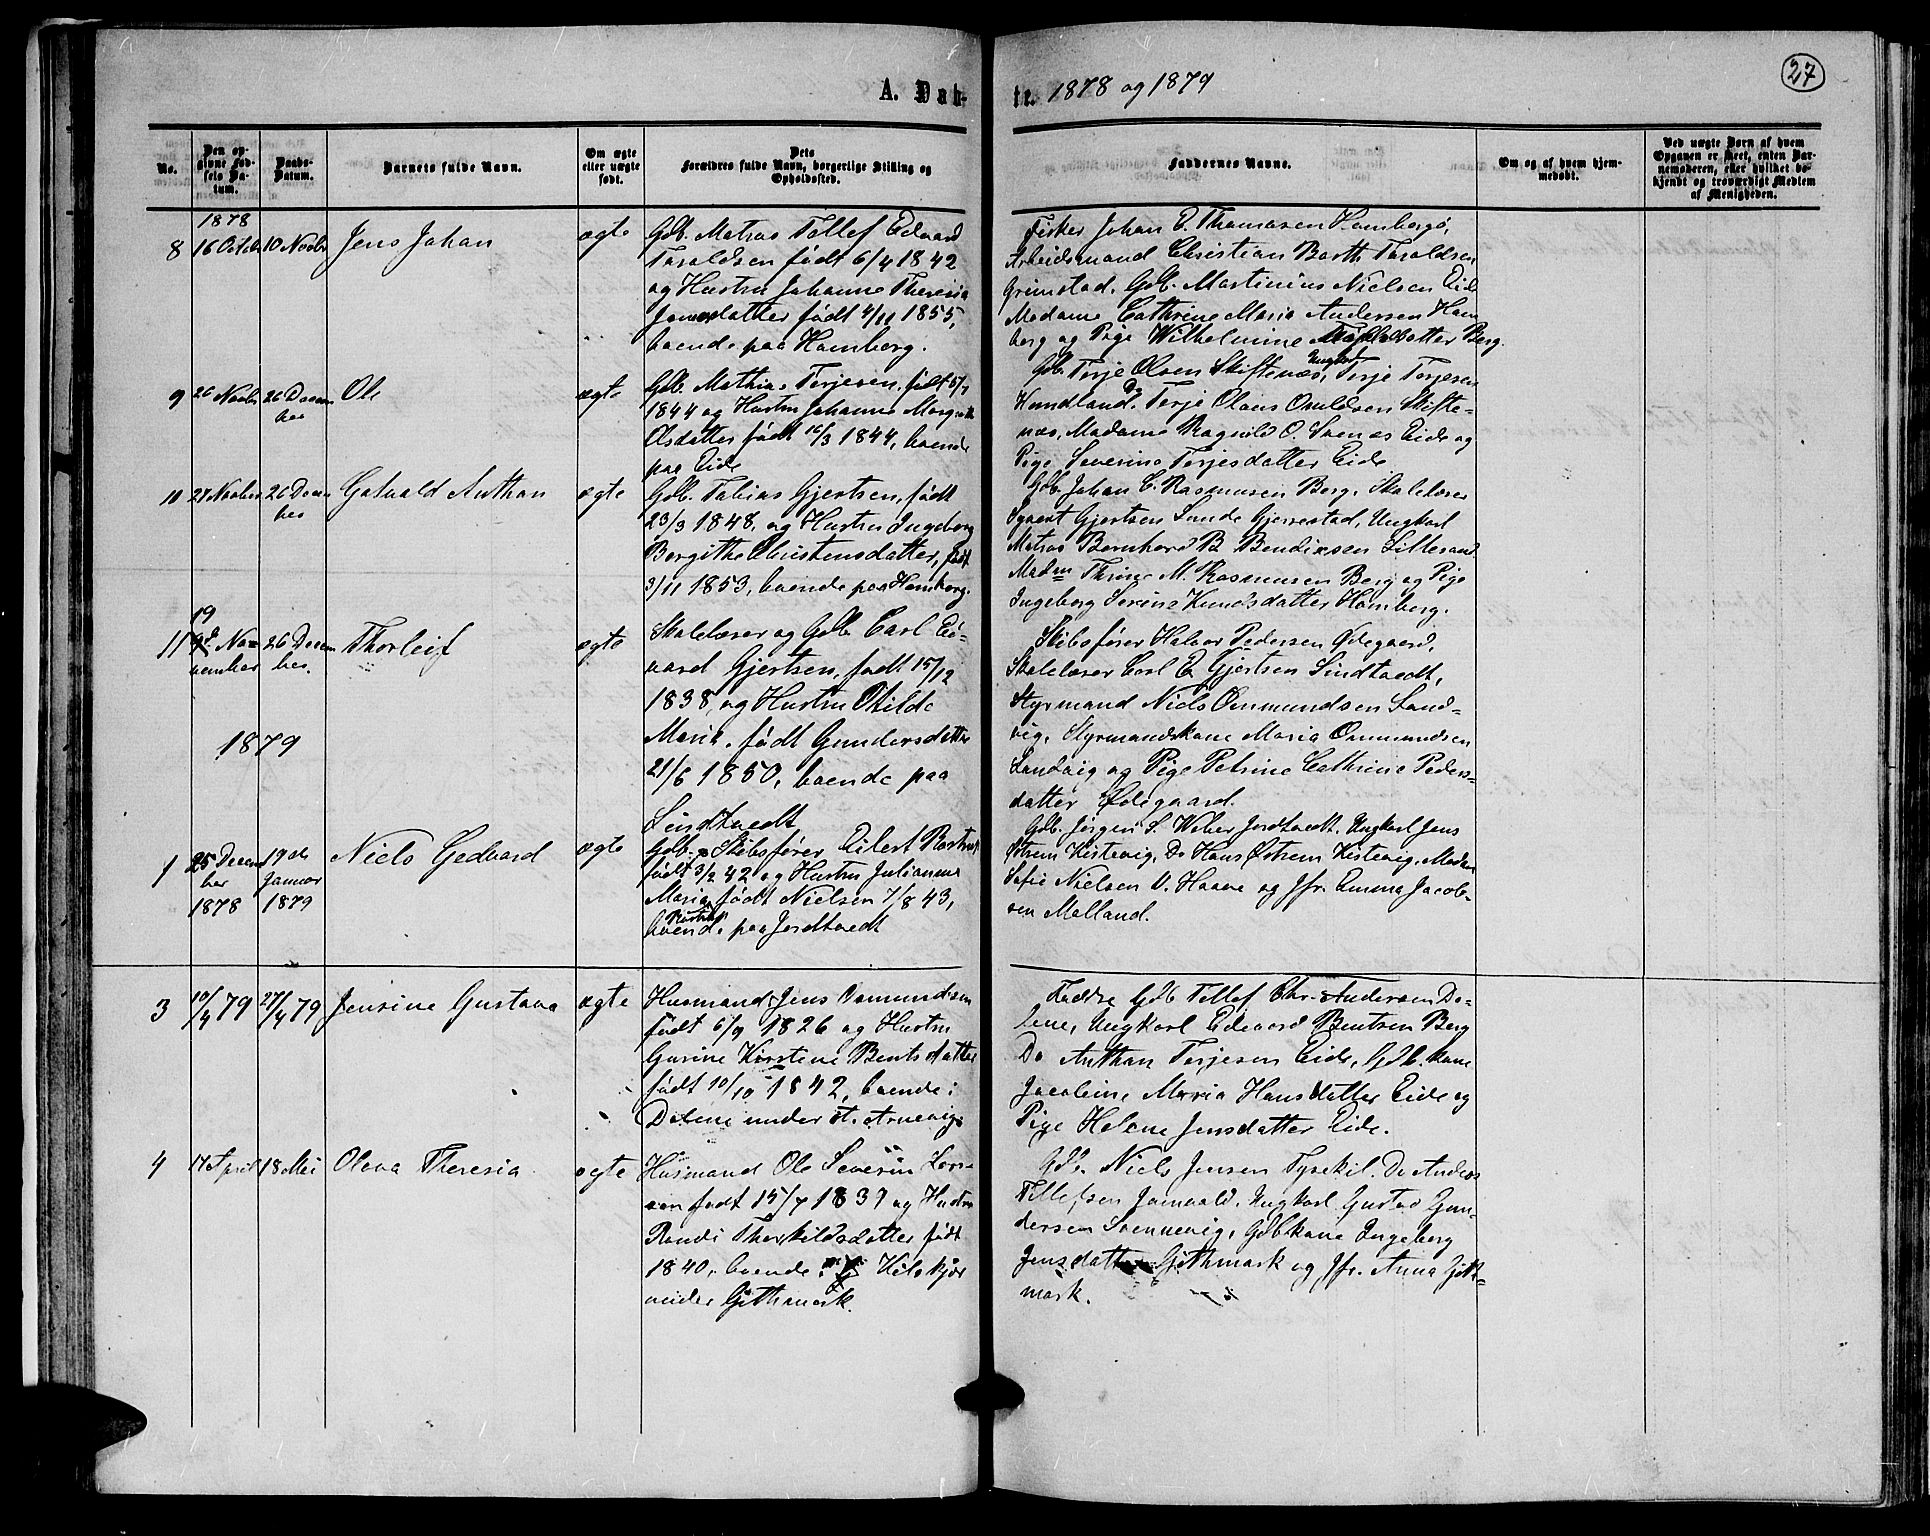 A. Døb-
te. 1878 og 1879
27
No.
Den op-
givne Fød-
sels Da-
tum.
Daabs-
Datum.
Barnets fulde Navn.
Om ægte
eller uægte
født.
Dets
Forældres fulde Navn, borgerlige Stilling og
Opholdssted.
Faddernes Navne.
Om og af hvem hjem-
medøbt.
Ved uægte Børn af hvem
Opgaven er skeet, enten Bar-
nemoderen, eller hvilket be-
kjendt og troværdigt Medlem
af Menigheden.
1878
8 16 Octob 10 Novbr Jens Johan ægte
Gdb. Matros Tellef Edvard
Taraldsen født 6/4 1842
og Hustru Johanne Theresia
Jensdatter født 4/11 1855,
boende paa Homborg.
Fisker Johan E. Thomasen Homborgø,
Arbeidsmand Christian Barth Taraldsen
Grimstad. Gdb. Martinius Nielsen Eide
Madame Cathrine Maria Andersen Hom
borg og Pige Wilhelmine Tellefsdatter Berg.
9 26 Novbr 26 Decem
ber
Ole ægte
Gdb. Mathias Terjesen, født 5/7
1844 og Hustru Johanne Margrethe
Olsdatter født 16/3 1844, boende
paa Eide
Gdb. Terje Olsen Skiftenæs, Ungkarl Terje Terjesen
Hundland. Do Terje Olaus Omldsen Skifte-
næs, Madame Ragnild O. Svenæs Eide og
Pige Severine Terjesdatter Eide
10 27 Novber 26 Decem
ber
Gotvald Anthon ægte
Gdb. Tobias Gjertsen, født
23/3 1848, og Hustru Ingeborg
Bergithe Christensdatter, født
3/11 1853, boende paa Homborg.
Gdb. Johan C. Rasmusen Berg, Skolelærer
Syvert Gjertsen Sunde Gjerrestad, Ungkarl
Matros Bernhard B. Bendixsen Lillesand
Madm Thrine M. Rasmusen Berg og Pige
Ingeborg Serine Knudsdatter Homborg.
19
11 9d No-
vember
26 Decem
ber.
Thorleif ægte
Skolelærer og Gdb. Carl Ed-
vard Gjertsen, født 15/12
1838, og Hustru Otilde
Maria, født Gundersdatter
21/6 1850, boende paa
Lindtvedt
Skibsfører Halvor Pedersen Ødegaard,
Skolelærer Carl E. Gjertsen Lindtvedt,
Styrmand Niels Ommundsen Sand-
vig, Styrmandskone Maria Ommundsen
Sandvig og Pige Petrine Cathrine Peders-
datter Ødegaard.
1879
1 25 Decem
ber
1878
19de
Januar
1879
Niels Gedvard ægte
Gdb. Skibsfører Eilert Rostrup
født 3/2 42 og Hustru Julianne
Maria født Nielsen 7/8 43,
Rostrup
boende paa Jordtvedt
Gdb. Jørgen S. Weber Jordtvedt. Ungkarl Jens
Østrem Kistevig, Do Hans Østrem Kistevig, Madam
Sofie Nielsen V. Haave og Jfr. Emma Jacob-
sen Molland.
3 10/4 79 27/4 79 Jensine Gustava ægte
Husmand Jens Osmundsen
født 6/9 1826 og Hustru
Gurine Kirstine Bentsdatter
født 10/10 1842, boende i
Dolene under St. Arnevig.
Faddre Gdb Tellef Chr. Andersen Do-
lene, Ungkarl Edvard Bentsen Berg
Do Anthon Terjesen Eide, Gdb. kone
Jacobine Maria Hansdatter Eide og
Pige Helene Jensdatter Eide.
4 17 April 18 Mei Olava Theresia ægte
Husmand Ole Severin Lars-
sen født 15/7 1837 og Hustru
Randi Thorkildsdatter født
1840, boende Kilskjær
under Githmark.
Gdb. Niels Jensen Tysekil. Do Anders
Tellefsen Jomvald, Ungkarl Gustav Gun-
dersen Svennevig, Gdbkone Ingeborg
Jensdatter Githmark og Jfr. Anna Gith-
mark.